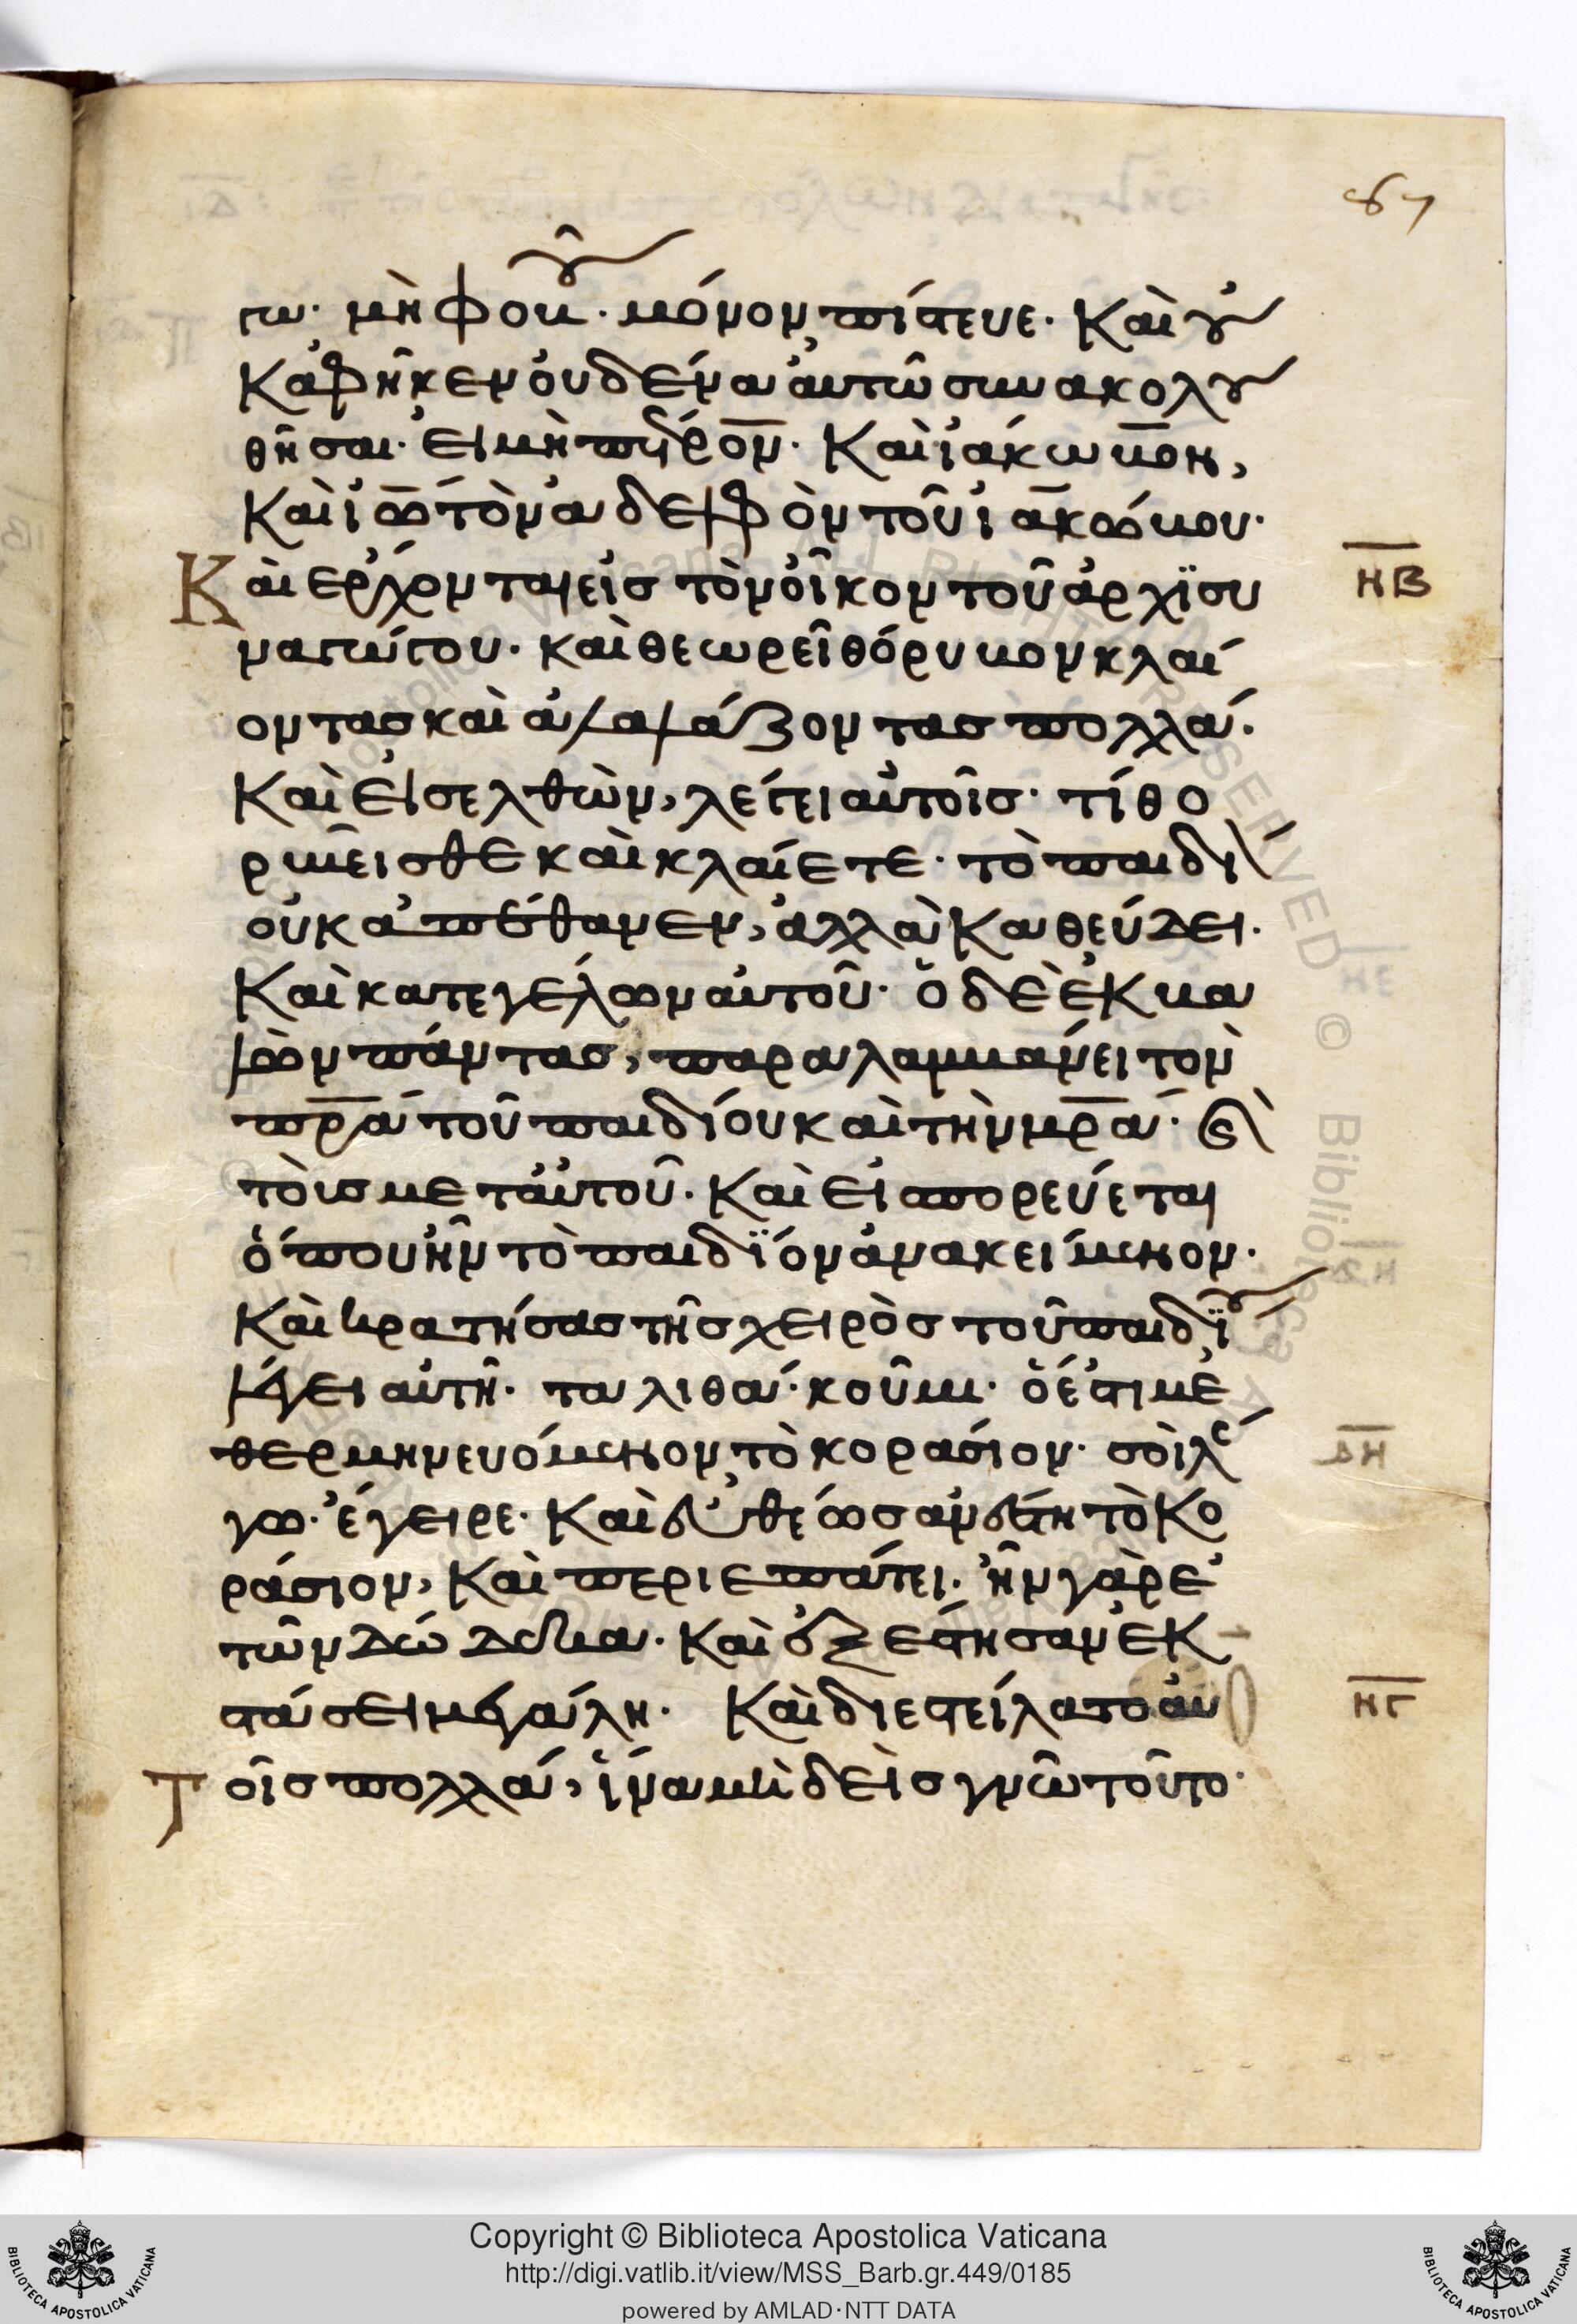 87
γω· μὴ φοβοῦ· μόνον πίστευε· Καὶ οὐ
κ ἀφῆκεν οὐδένα αὐτῶ συνακολου
θῆσαι· εἰ μὴ πέτρον· Καὶ ἰάκωβον,
Καὶ ἰω τὸν ἀδελφὸν τοῦ ἰακώβου·
Καὶ ἔρχονται εἰς τὸν οἶκον τοῦ ἀρχϊσυ
ναγώγου· καὶ θεωρεῖ θόρυβον κλαί
οντας καὶ ἀλαλάζοντας πολλά·
Καὶ εἰσελθὼν, λέγει αὐτοῖς· τί θο
ρυβεῖσθε καὶ κλαίετε· τὸ παιδί
οὐκ ἀπέθανεν, ἀλλὰ Καθεύδει·
Καὶ κατεγέλων αὐτοῦ· ὁ δὲ ἐκβα
λὼν πάντας, παραλαμβάνει τὸν
πρα τοῦ παιδίου καὶ τὴν μρα· Καὶ
τοὺς μετ αὐτοῦ· Καὶ εἰσπορεύεται
ὅπου ἦν τὸ παιδϊόν ἀνακείμενον·
Καὶ κρατήσας τῆς χειρὸς τοῦ παιδϊου
λέγει αὐτῆ· ταλιθά· κοῦμι· ὅ ἐστι με
θερμηνευόμενον τὸ κοράσιον· σοὶ λέ
γω· ἔγειρε· Καὶ εὐθέως ἀνέστη τὸ Κο
ράσιον, Καὶ περιεπάτει· ἦν γὰρ ἐ
τῶν δώδεκα· Καὶ ἐξέστησαν ἐκ
στάσει μεγάλη· Καὶ διεστείλατο αὐ
τοῖς πολλά, ἵνα μηδεὶς γνῶ τοῦτο·
ΗΒ
ΔΗ
ΗΓ
Copyright © Biblioteca Apostolica Vaticana
http://digi.vatlib.it/view/MSS_Barb.gr.449/0185
powered by AMLAD·NTT DATA
BIBLIOTECA APOSTOLICA VATICANA
BIBLIOTECA APOSTOLICA VATICANA